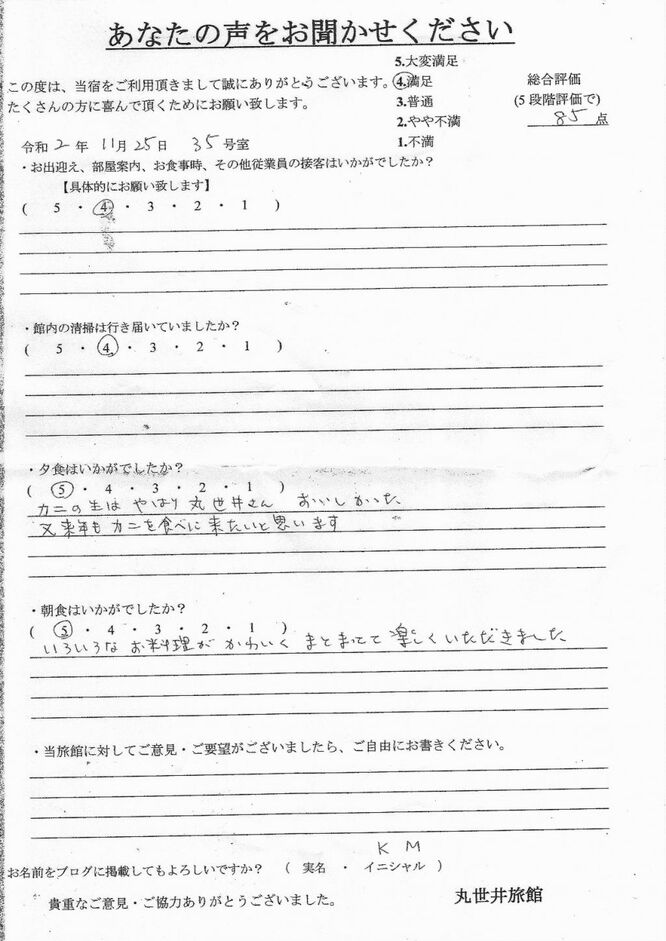 あなたの声をお聞かせください
5.大変満足
この度は、当宿をご利用頂きまして誠にありがとうございます。 4.満足 総合評価
たくさんの方に喜んで頂くためにお願い致します。 3.普通 (5段階評価で)
2.やや不満 85点
令和2年11月25日 35号室 1.不満
・お出迎え、部屋案内、お食事時、その他従業員の接客はいかがでしたか？
【具体的にお願い致します】
( 5 ・ 4 ・ 3 ・ 2 ・ 1 )
・館内の清掃は行き届いていましたか？
( 5 ・ 4 ・ 3 ・ 2 ・ 1 )
・夕食はいかがでしたか？
( 5 ・ 4 ・ 3 ・ 2 ・ 1 )
カニの生は やはり 丸世井さん おいしかった
又来年も カニを食べに 来たいと思います
・朝食はいかがでしたか？
( 5 ・ 4 ・ 3 ・ 2 ・ 1 )
いろいろな お料理が かわいく まとまってて 楽しくいただきました
・当旅館に対してご意見・ご要望がございましたら、ご自由にお書きください。
K M
お名前をブログに掲載してもよろしいですか？ ( 実名 ・ イニシャル )
貴重なご意見・ご協力ありがとうございました。 丸世井旅館